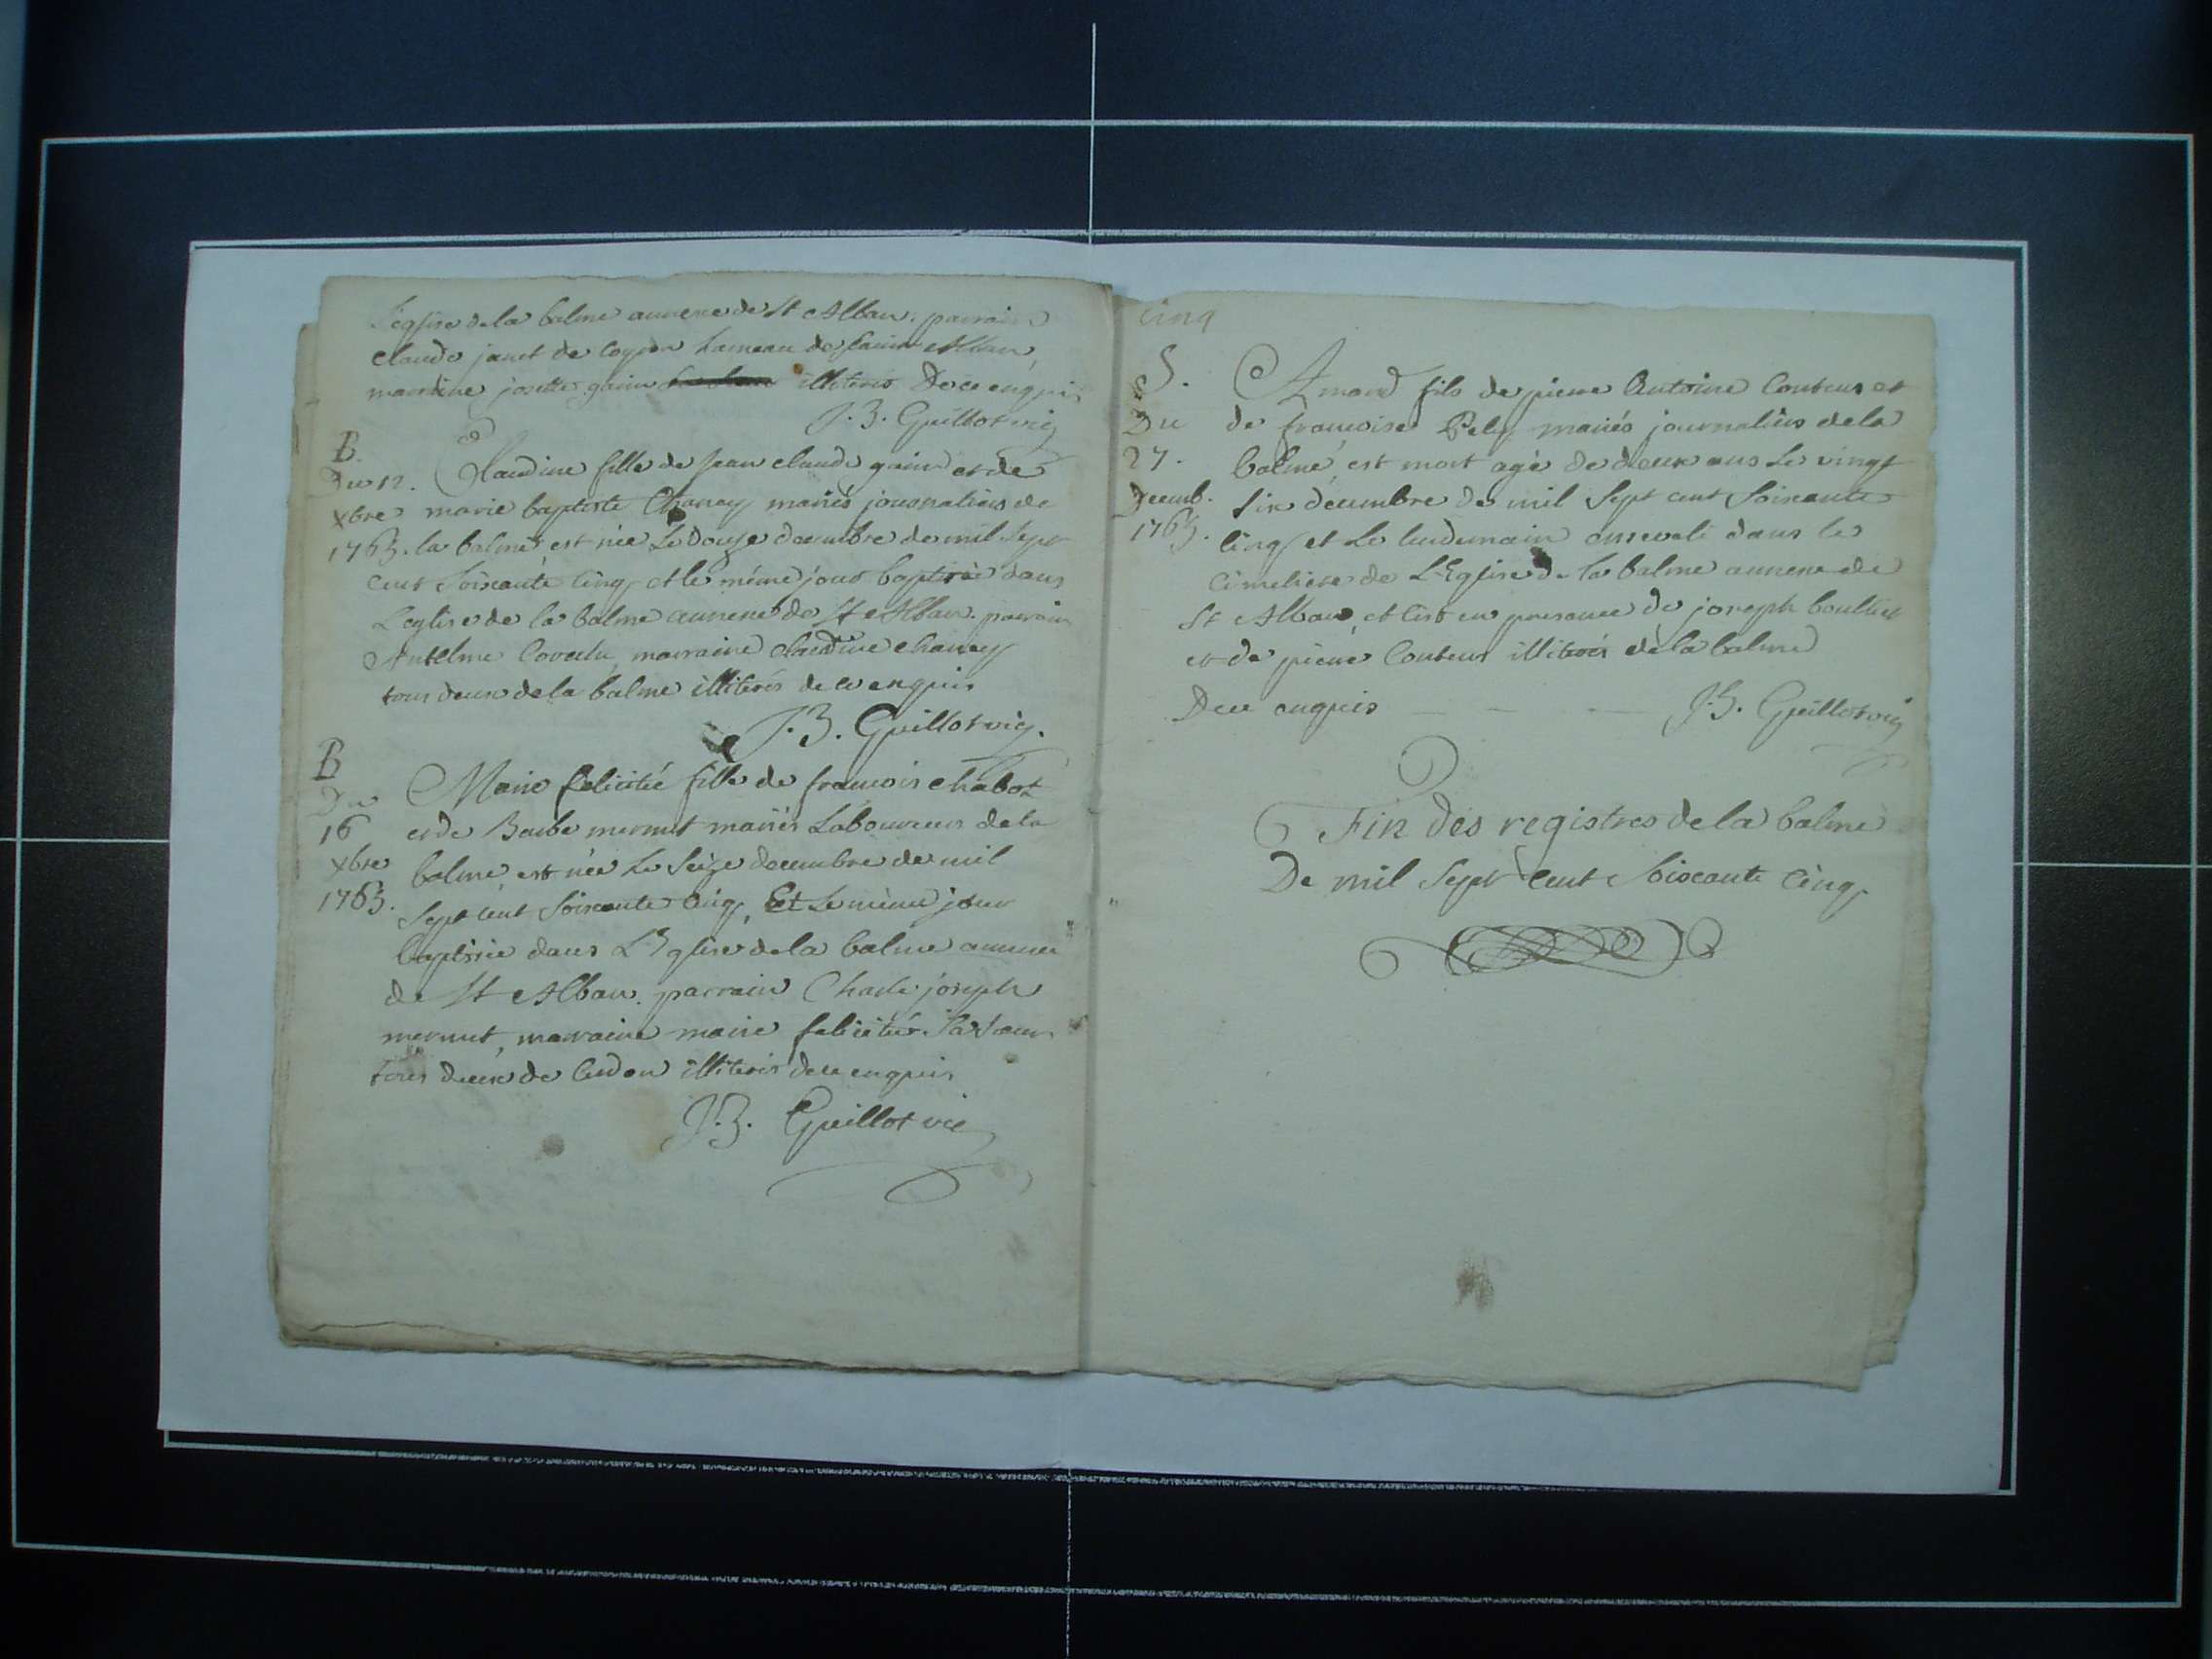 L'eglise de la balme annexe de St Alban. parrain
claude janet de hameau de saint Alban,
marraine josette gain illiterés De ce enquis
J. B. Guillot vic
B.
Du 12.
xbre
1765.
Claudine fille de jean claude gain et de
marie baptiste Chaney mariés journaliers de
la balme est née Le Douze decembre de mil Sept
cent Soixante Cinq et le même jour baptisée dans
L'eglise de la balme annexe de St Alban. parrain
Antelme marraine claudine chaney
tous deux de la balme illiterés de ce enquis
J. B. Guillot vic.
B
Du
16
xbre
1765.
Marie felicité fille de francois chabot
et de Barbe mermet mariés Laboureurs de la
balme est née Le Seize decembre de mil
Sept cent Soixante Cinq, Et Le même jour
baptisée dans L'Eglise de la balme annexe
de St Alban. parrain Charle joseph
mermet, marraine marie felicité Sa Soeur
tous deux de Cerdon illiterés de ce enquis
J. B. Guillot vic
cinq
S.
Du
27.
Decemb.
1765.
Amand fils de pierre Antoine Couteur et
de francoise Pely mariés journaliers de la
balme est mort agé de deux ans Le vingt
Six decembre de mil Sept cent Soixante
Cinq et Le lendemain enseveli dans le
Cimetiere de L'Eglise de la balme annexe de
St Alban, et c'est en presence de joseph
et de pierre Couteur illiterés de la balme
De ce enquis J. B. Guillot vic
Fin des registres de la balme
De mil Sept Cent Soixante Cinq